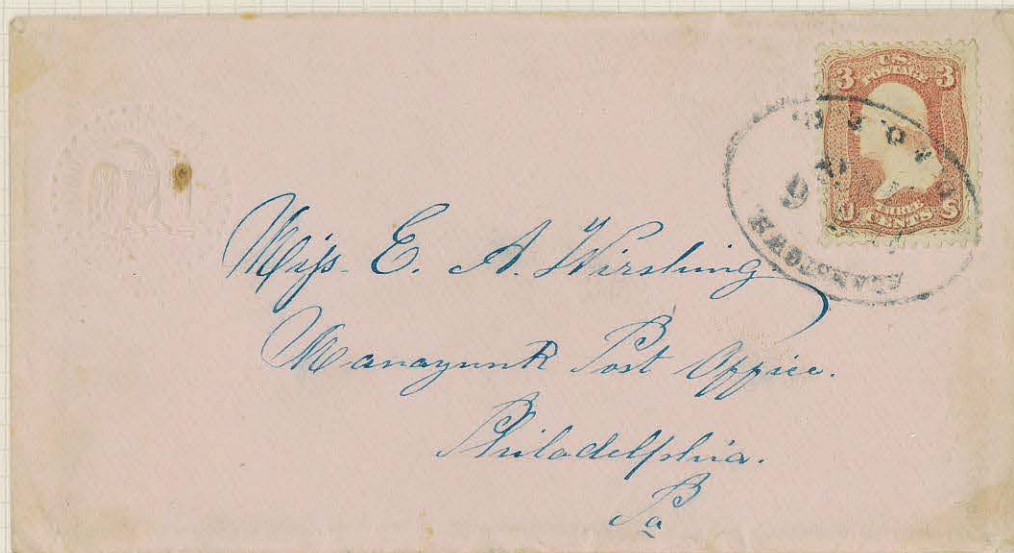 3 U.S. 3
POSTAGE
THREE
CENTS
Miss. E. A. Wirshing
Manayunk Post Office.
Philadelphia.
Pa